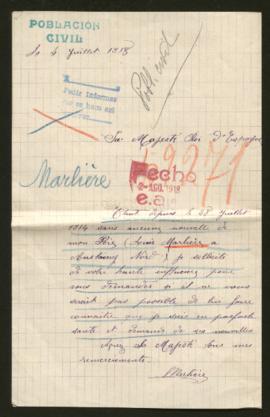 POBLACIÓN
CIVIL
le 4 Juillet 1918
Pedir informes
Pobl. civil
Sa Majesté Roi d'Espagne
49271
Marlière
Fecho
2-AGO.1918
e.a.
Étant depuis le 28 Juillet
1914 sans aucune nouvelle de
mon Père (Louis Marlière à
Nord) je sollicite
de votre haute influence pour
vous demander si il ne vous
serait pas possible de lui faire
connaître que je suis en parfaite
santé et demande de ses nouvelles
Agréez Majesté tous mes
remerciements.
Marlière